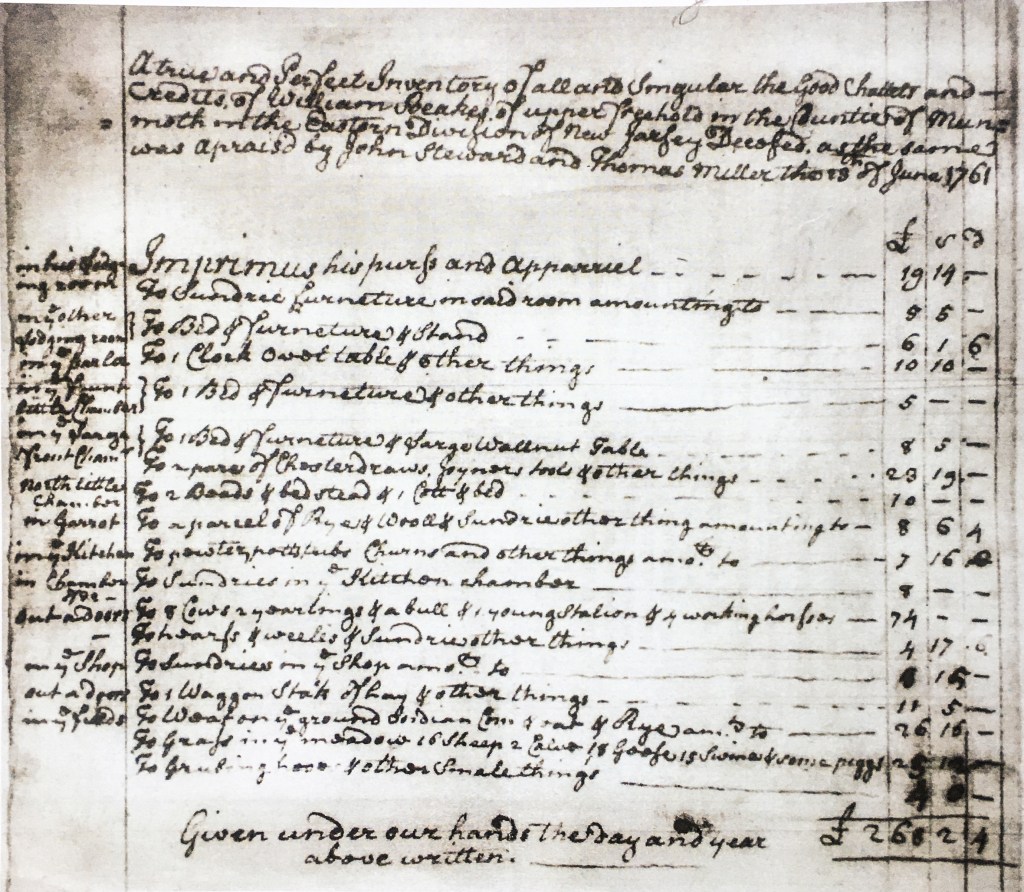 A true and Perfect Inventory of all and Singular the Good Chattels and
Credits, of William Beakes, of upper freehold in the Countie of Mun=
= moth in the Eastorn Division of New Jarsey Decesed. as the same
was apraised by John Steward and Thomas Miller the 13th of June 1761
£ s d
in his Lodg
ing room Imprimus his purss and Apparriel 19 14 -
To Sundrie furneture in said room amounting to 8 5 -
in ye other
Lodging room } To Bed & furneture & Stand 6 1 6
in ye Parlar To 1 Clock Ovel table & other things 10 10 -
in ye frunt
little Chamber } To 1 Bed & furneture & other things 5 -
in ye Large
frout Cham } To 1 Bed & furneture & Large Wallnut Table 8 5 -
To 2 pare of Chesterdraws, Joyners tools & other things 23 19 -
North little
Chamber To 2 Beads & bedstead & 1 Cott & bed 10 - -
in Garrot To a parcel of Rye & Wooll & Sundrie other thing amounting to 8 6 4
in ye Kitchen To pewter, potts tubs Churns and other things amotd to 7 16
in Chamber To Sundries in ye Kitchen chamber 8 - -
out a doors To 8 Cows 2 yearlings & a bull & 1 young Stalion & 4 working horses 74 - -
- To hearss & weeles & Sundrie other things 4 17
in ye Shop To Sundries in ye Shop amotd to 16 -
out a doors To 1 Waggon Stak of hay & other things 11 5 -
in ye feilds To Weat on ye ground Indian Corn & Rye amtd to 26 16 -
To Grass in ye meadow 16 Sheep 2 Calve 18 Geese 15 Swine & some piggs
To hooe & other Smale things 4 0 -
Given under our hands the day and year £ 268 2 4
above written.